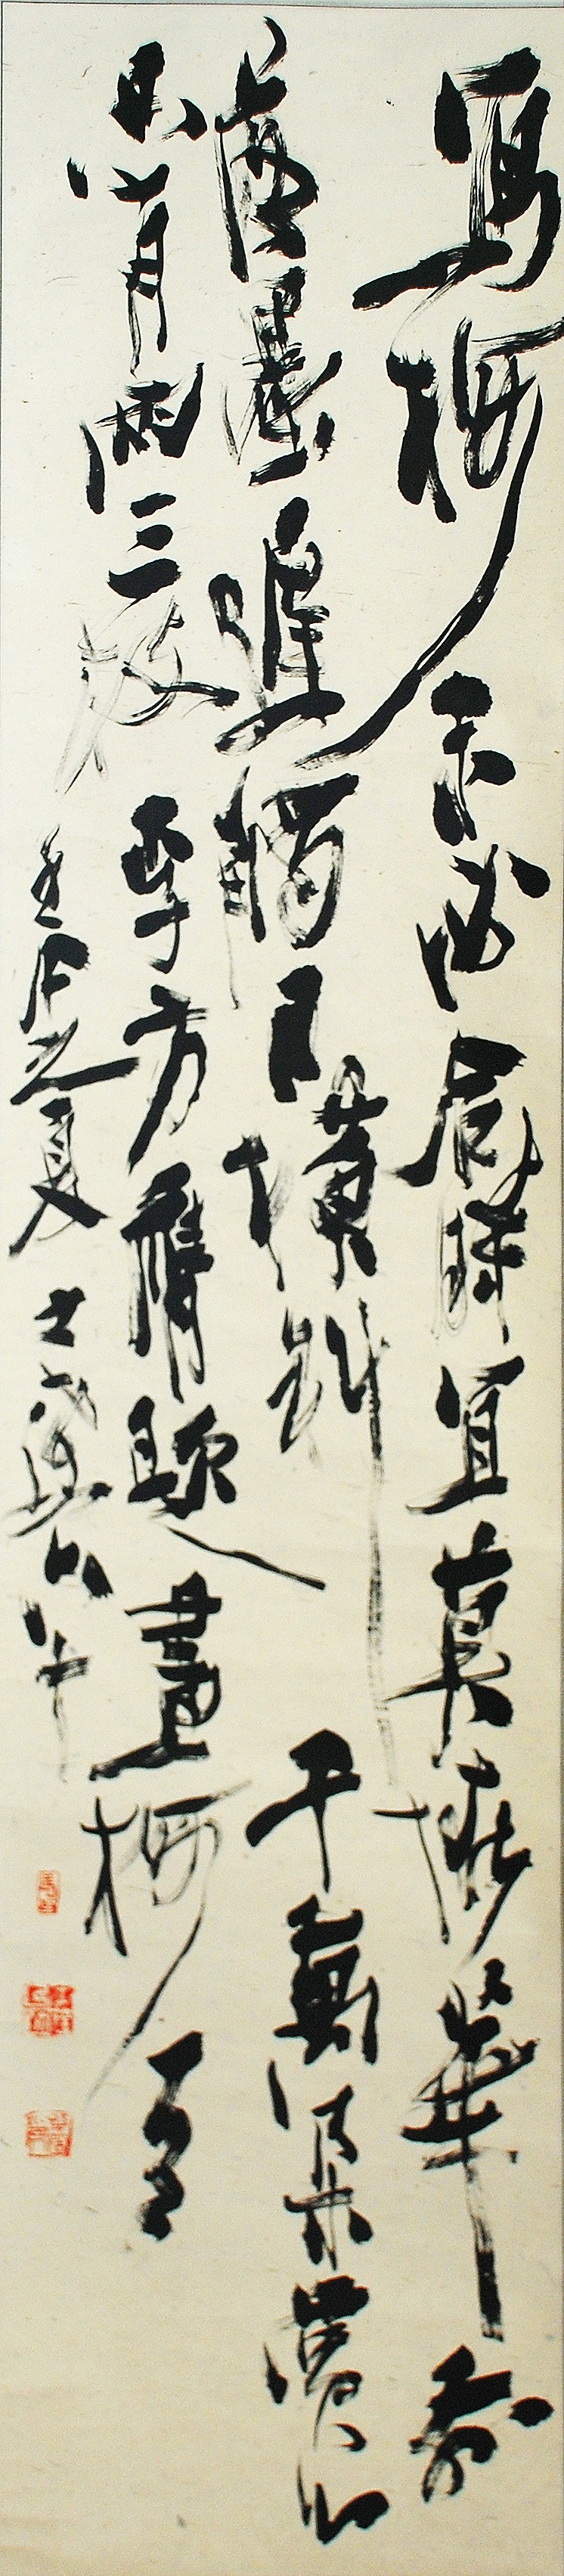 寫梅未必合時宜莫怪華前
落墨遲觸目橫斜千萬朵賞心
只有兩三枝 李方膺題畫梅句
之夏